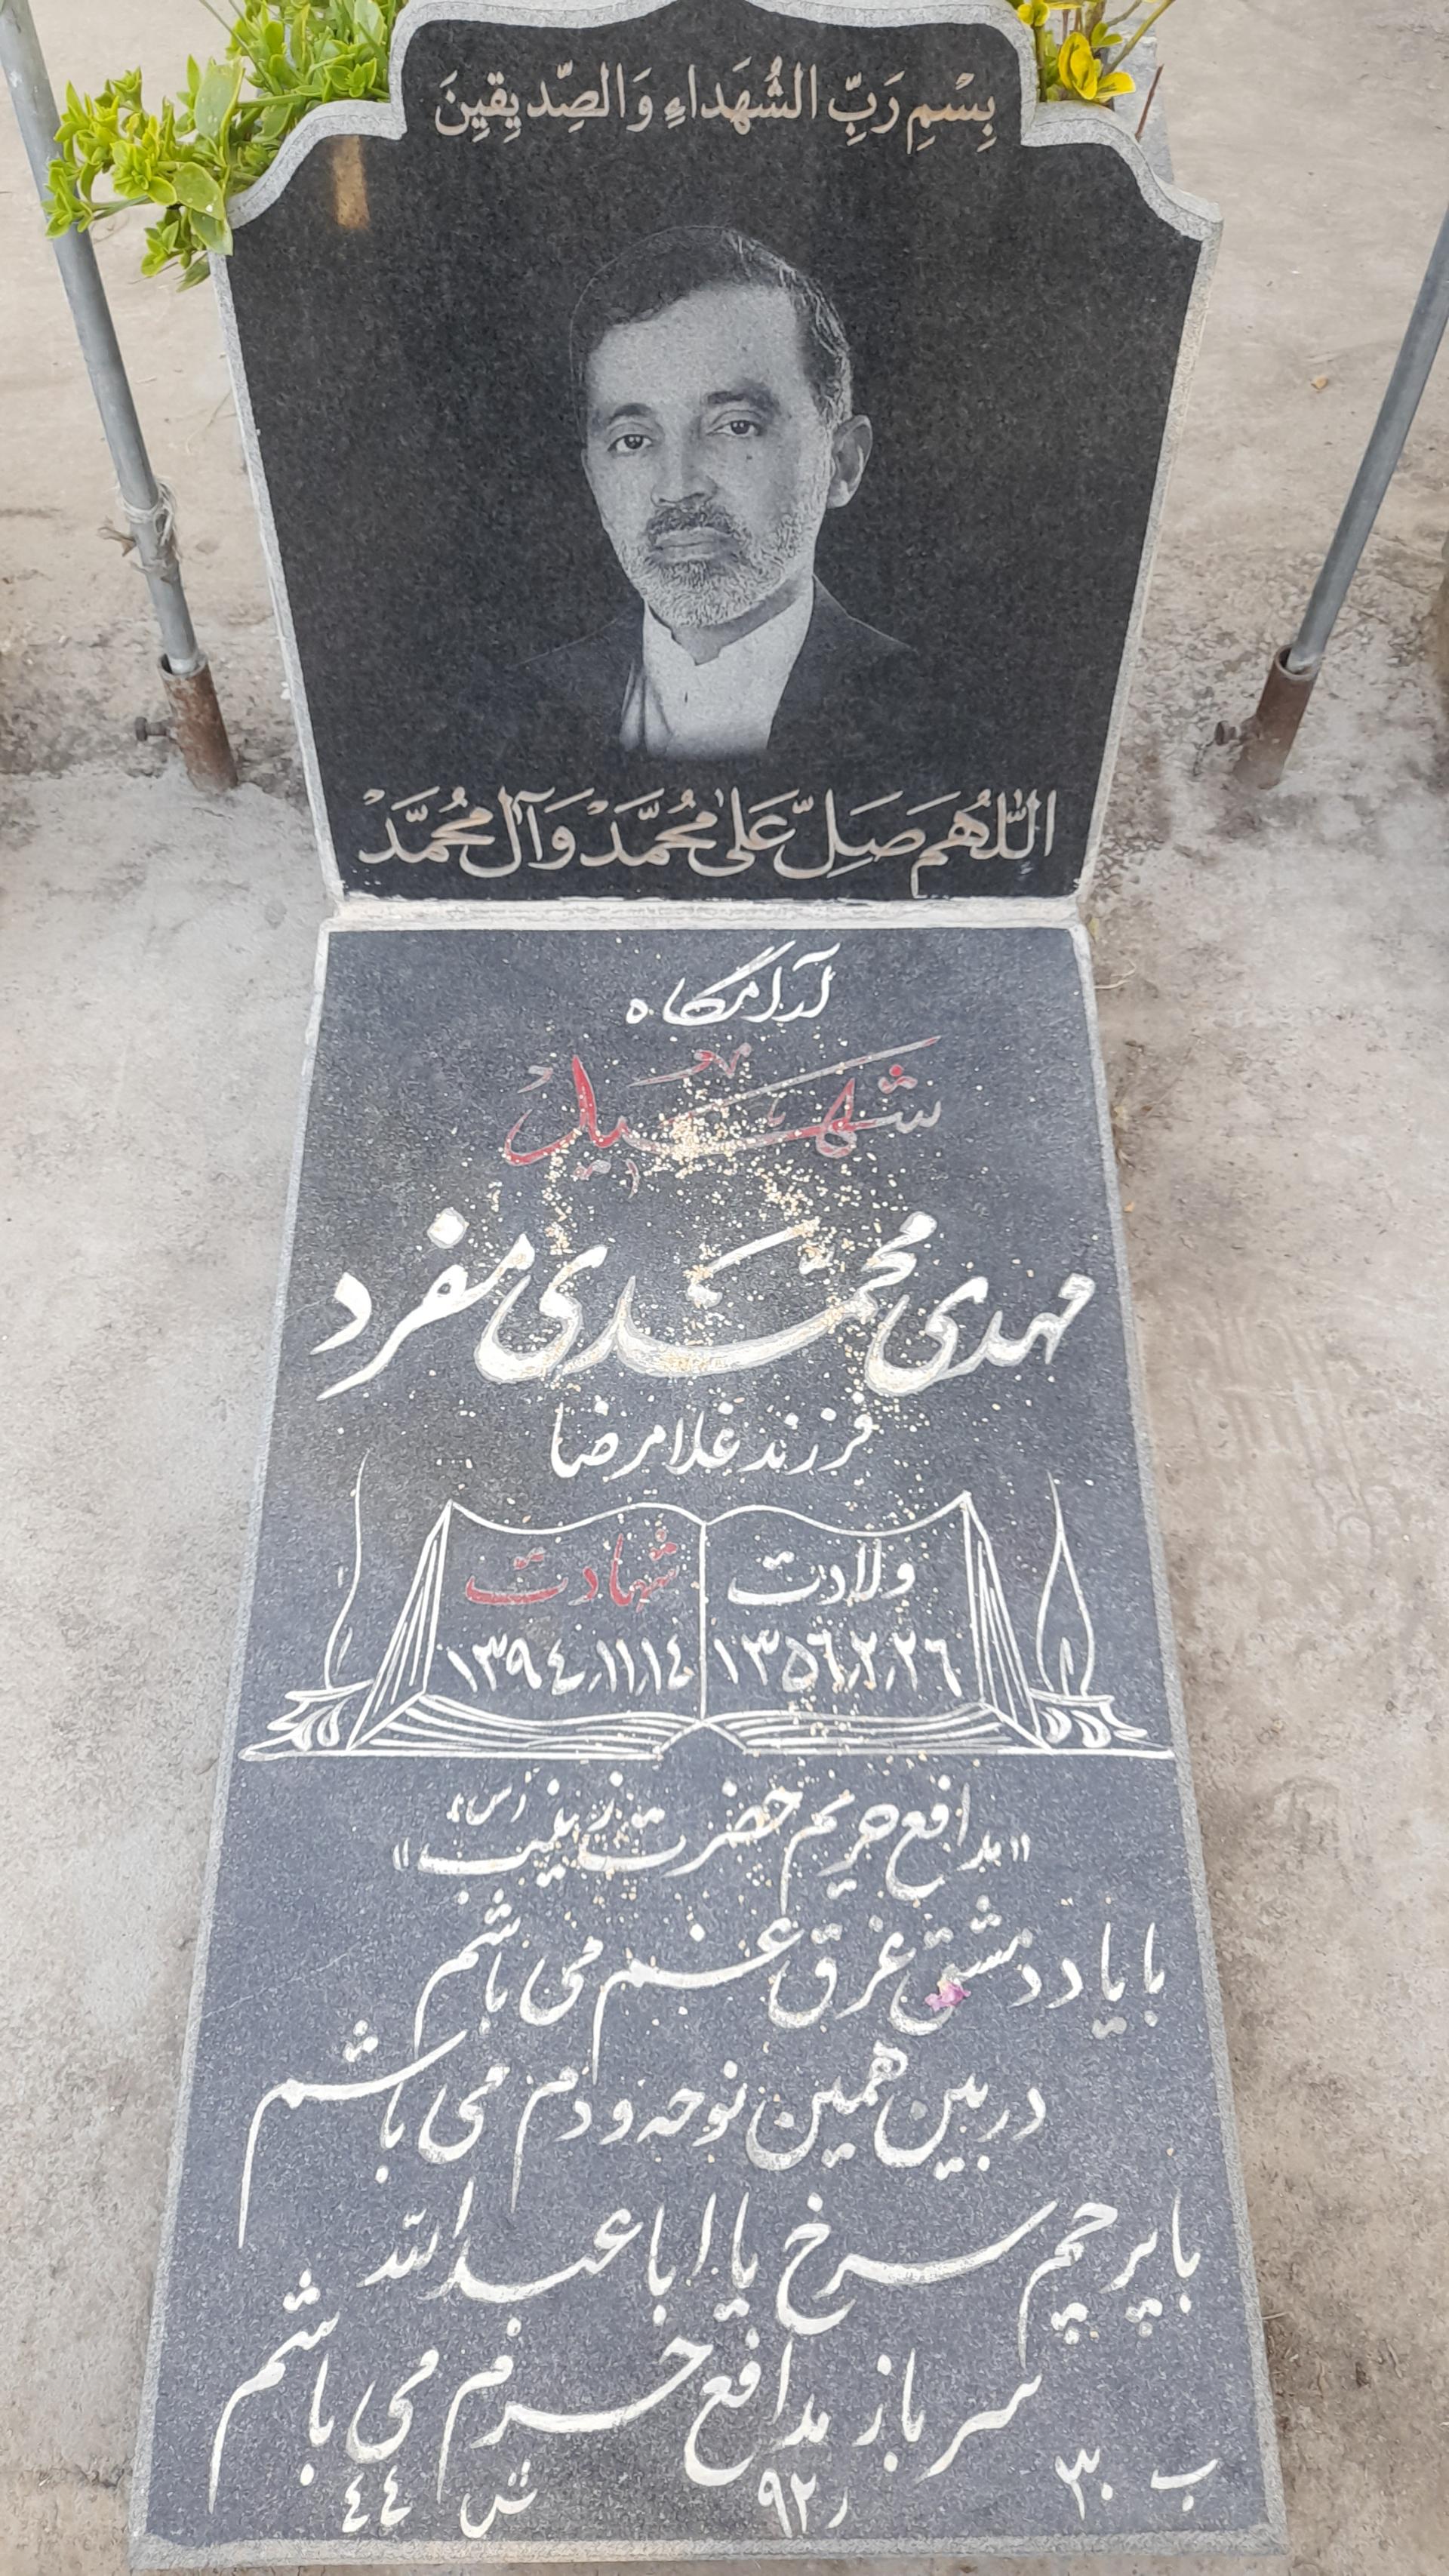 بِسْمِ رَبِّ الشُّهَداءِ وَالصِّديقينَ
اللّٰهُمَّ صَلِّ عَلىٰ مُحَمَّدْ وَآلِ مُحَمَّدْ
آرامگاه
شهید
مهدی محمّدی مفرد
فرزند غلامرضا
ولادت
۱۳۵۶٫۲٫۲۶
شهادت
۱۳۹۴٫۱۱٫۱۴
"مدافع حریم حضرت زینب (س)"
با یاد دمشق غرق غم می باشم
در بین همین نوحه و دم می باشم
با پرچم سرخ یا اباعبدالله
سرباز مدافع حرم می باشم
ب ۳۰ ر ۹۲ ش ۴۴